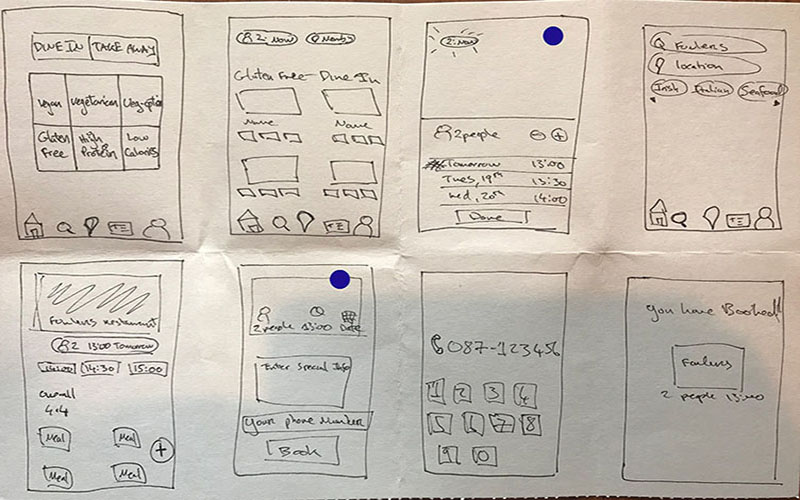 DINE IN TAKE AWAY
Vegan Vegetarian Veg-option
Gluten Free High Protein Low Calories
2: Now Nearby
Gluten Free Dine In
Name Name
2: Now
2 people
Tomorrow 13:00
Tues, 19th 13:30
Wed, 20th 14:00
Done
Fowlers
location
Irish Italian Seafood
Fowlers Restaurant
2 13:00 Tomorrow
14:30 15:00
overall
4.4
Meal Meal
Meal Meal
2 people 13:00 Date
Enter Special Info
Your phone Number
Book
087-123456
1 2 3 4
5 6 7 8
9 0
You have Booked!!
Fowlers
2 people 13:00